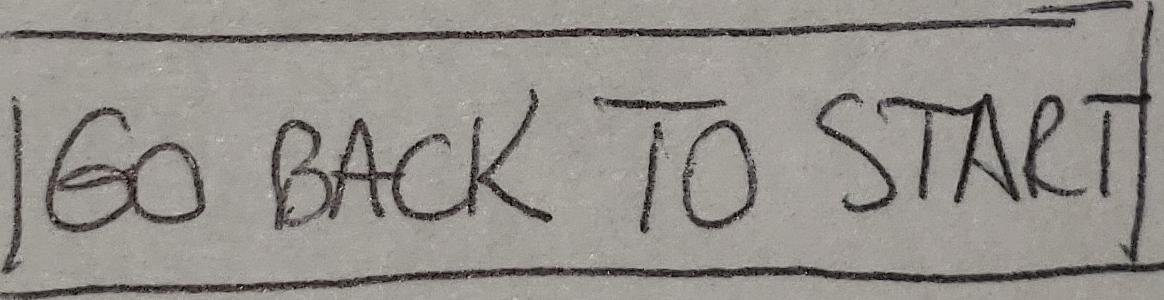 GO BACK TO START